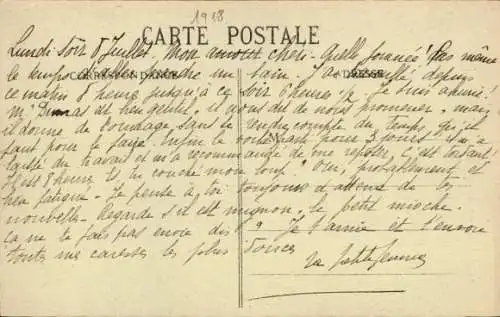 1918
CARTE POSTALE
CORRESPONDANCE
ADRESSE
Lundi soir 8 Juillet. Mon amour chéri. Quelle journée! Pas même
le temps d'aller prendre un bain. J'ai depuis
ce matin 8 heures jusqu'à ce soir 6 heures ½. Je suis
Mr est bien gentil. Il nous dit de nous promener, mais
il donne de l'ouvrage sans se rendre compte du temps qu'il
faut pour le faire. Enfin le voilà pour 3 jours. Il m'a
laissé du travail et m'a recommandé de me reposer, c'est
Il est 8 heures et je me couche mon loup. Oui, probablement et
bien fatiguée. Je pense à toi toujours et attends de tes
nouvelles. Regarde s'il est mignon, le petit mioche.
Ça ne te fais pas envie dis? Je t'aime et t'envoie
toutes mes caresses les plus douces
Ta petite femme